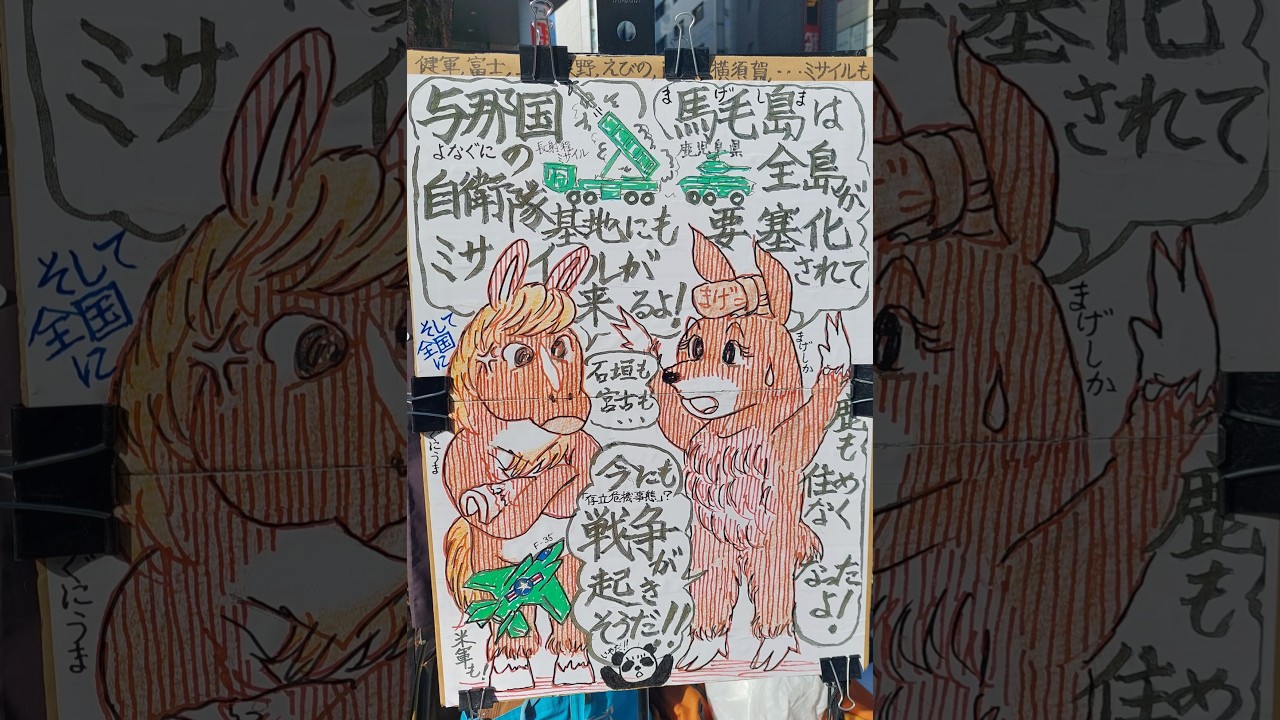 健軍,富士,...野,えびの,横須賀,...ミサイルも
与那国
よなぐに
の
長射程
ミサイル
自衛隊
基地にも
ミサイルが
来るよ!
まげしま
馬毛島は
鹿児島県
全島が
要塞化
されて
そして
全国
に
石垣も
宮古も
...
まげしか
鹿も
住め
なく
なった
よ!
にうま
今にも
「存立危機事態」?
戦争
が
起き
そうだ!!
F-35
米軍も!